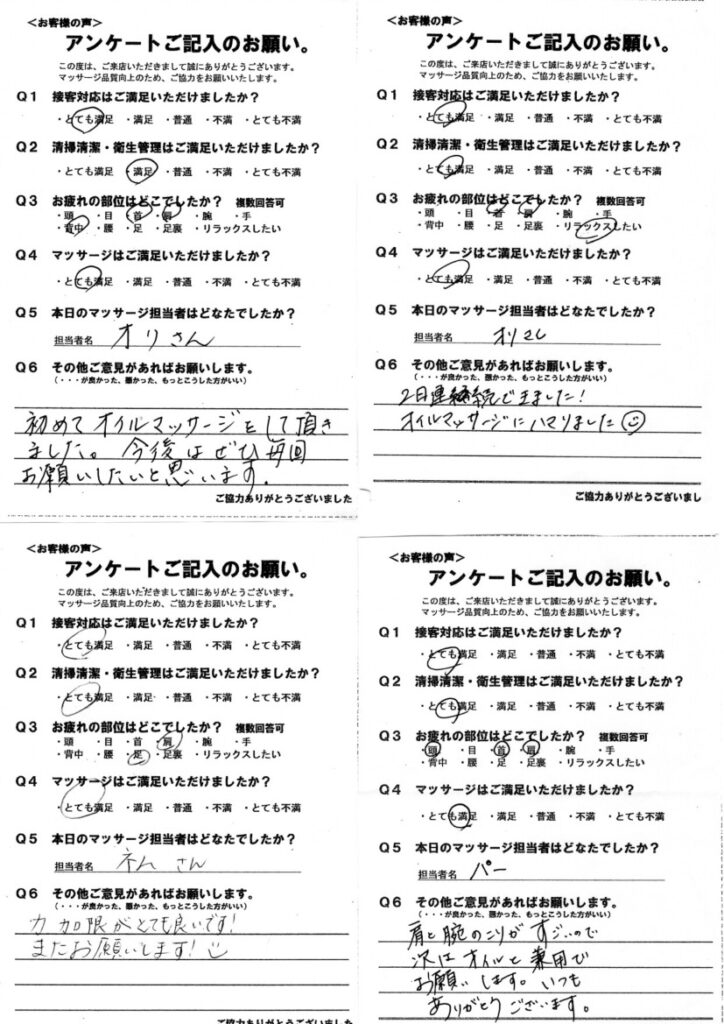 ＜お客様の声＞
アンケートご記入のお願い。
この度は、ご来店いただきまして誠にありがとうございます。
マッサージ品質向上のため、ご協力をお願いいたします。
Q1 接客対応はご満足いただけましたか？
・とても満足 ・満足 ・普通 ・不満 ・とても不満
Q2 清掃清潔・衛生管理はご満足いただけましたか？
・とても満足 ・満足 ・普通 ・不満 ・とても不満
Q3 お疲れの部位はどこでしたか？ 複数回答可
・頭 ・目 ・首 ・肩 ・腕 ・手
・背中 ・腰 ・足 ・足裏 ・リラックスしたい
Q4 マッサージはご満足いただけましたか？
・とても満足 ・満足 ・普通 ・不満 ・とても不満
Q5 本日のマッサージ担当者はどなたでしたか？
担当者名 オリさん
Q6 その他ご意見があればお願いします。
（・・・が良かった、悪かった、もっとこうした方がいい）
初めてオイルマッサージをして頂き
ました。今後はぜひ毎回
お願いしたいと思います。
ご協力ありがとうございました
＜お客様の声＞
アンケートご記入のお願い。
この度は、ご来店いただきまして誠にありがとうございます。
マッサージ品質向上のため、ご協力をお願いいたします。
Q1 接客対応はご満足いただけましたか？
・とても満足 ・満足 ・普通 ・不満 ・とても不満
Q2 清掃清潔・衛生管理はご満足いただけましたか？
・とても満足 ・満足 ・普通 ・不満 ・とても不満
Q3 お疲れの部位はどこでしたか？ 複数回答可
・頭 ・目 ・首 ・肩 ・腕 ・手
・背中 ・腰 ・足 ・足裏 ・リラックスしたい
Q4 マッサージはご満足いただけましたか？
・とても満足 ・満足 ・普通 ・不満 ・とても不満
Q5 本日のマッサージ担当者はどなたでしたか？
担当者名 オリさん
Q6 その他ご意見があればお願いします。
（・・・が良かった、悪かった、もっとこうした方がいい）
2日連続できました！
オイルマッサージにハマりました
ご協力ありがとうございまし
＜お客様の声＞
アンケートご記入のお願い。
この度は、ご来店いただきまして誠にありがとうございます。
マッサージ品質向上のため、ご協力をお願いいたします。
Q1 接客対応はご満足いただけましたか？
・とても満足 ・満足 ・普通 ・不満 ・とても不満
Q2 清掃清潔・衛生管理はご満足いただけましたか？
・とても満足 ・満足 ・普通 ・不満 ・とても不満
Q3 お疲れの部位はどこでしたか？ 複数回答可
・頭 ・目 ・首 ・肩 ・腕 ・手
・背中 ・腰 ・足 ・足裏 ・リラックスしたい
Q4 マッサージはご満足いただけましたか？
・とても満足 ・満足 ・普通 ・不満 ・とても不満
Q5 本日のマッサージ担当者はどなたでしたか？
担当者名 ネん さん
Q6 その他ご意見があればお願いします。
（・・・が良かった、悪かった、もっとこうした方がいい）
力加限がとても良いです！
またお願いします！
ご協力ありがとうございました
＜お客様の声＞
アンケートご記入のお願い。
この度は、ご来店いただきまして誠にありがとうございます。
マッサージ品質向上のため、ご協力をお願いいたします。
Q1 接客対応はご満足いただけましたか？
・とても満足 ・満足 ・普通 ・不満 ・とても不満
Q2 清掃清潔・衛生管理はご満足いただけましたか？
・とても満足 ・満足 ・普通 ・不満 ・とても不満
Q3 お疲れの部位はどこでしたか？ 複数回答可
・頭 ・目 ・首 ・肩 ・腕 ・手
・背中 ・腰 ・足 ・足裏 ・リラックスしたい
Q4 マッサージはご満足いただけましたか？
・とても満足 ・満足 ・普通 ・不満 ・とても不満
Q5 本日のマッサージ担当者はどなたでしたか？
担当者名 パー
Q6 その他ご意見があればお願いします。
（・・・が良かった、悪かった、もっとこうした方がいい）
肩と腕のこりがすごいので
次はオイルと兼用で
お願いします。いつも
ありがとうございます。